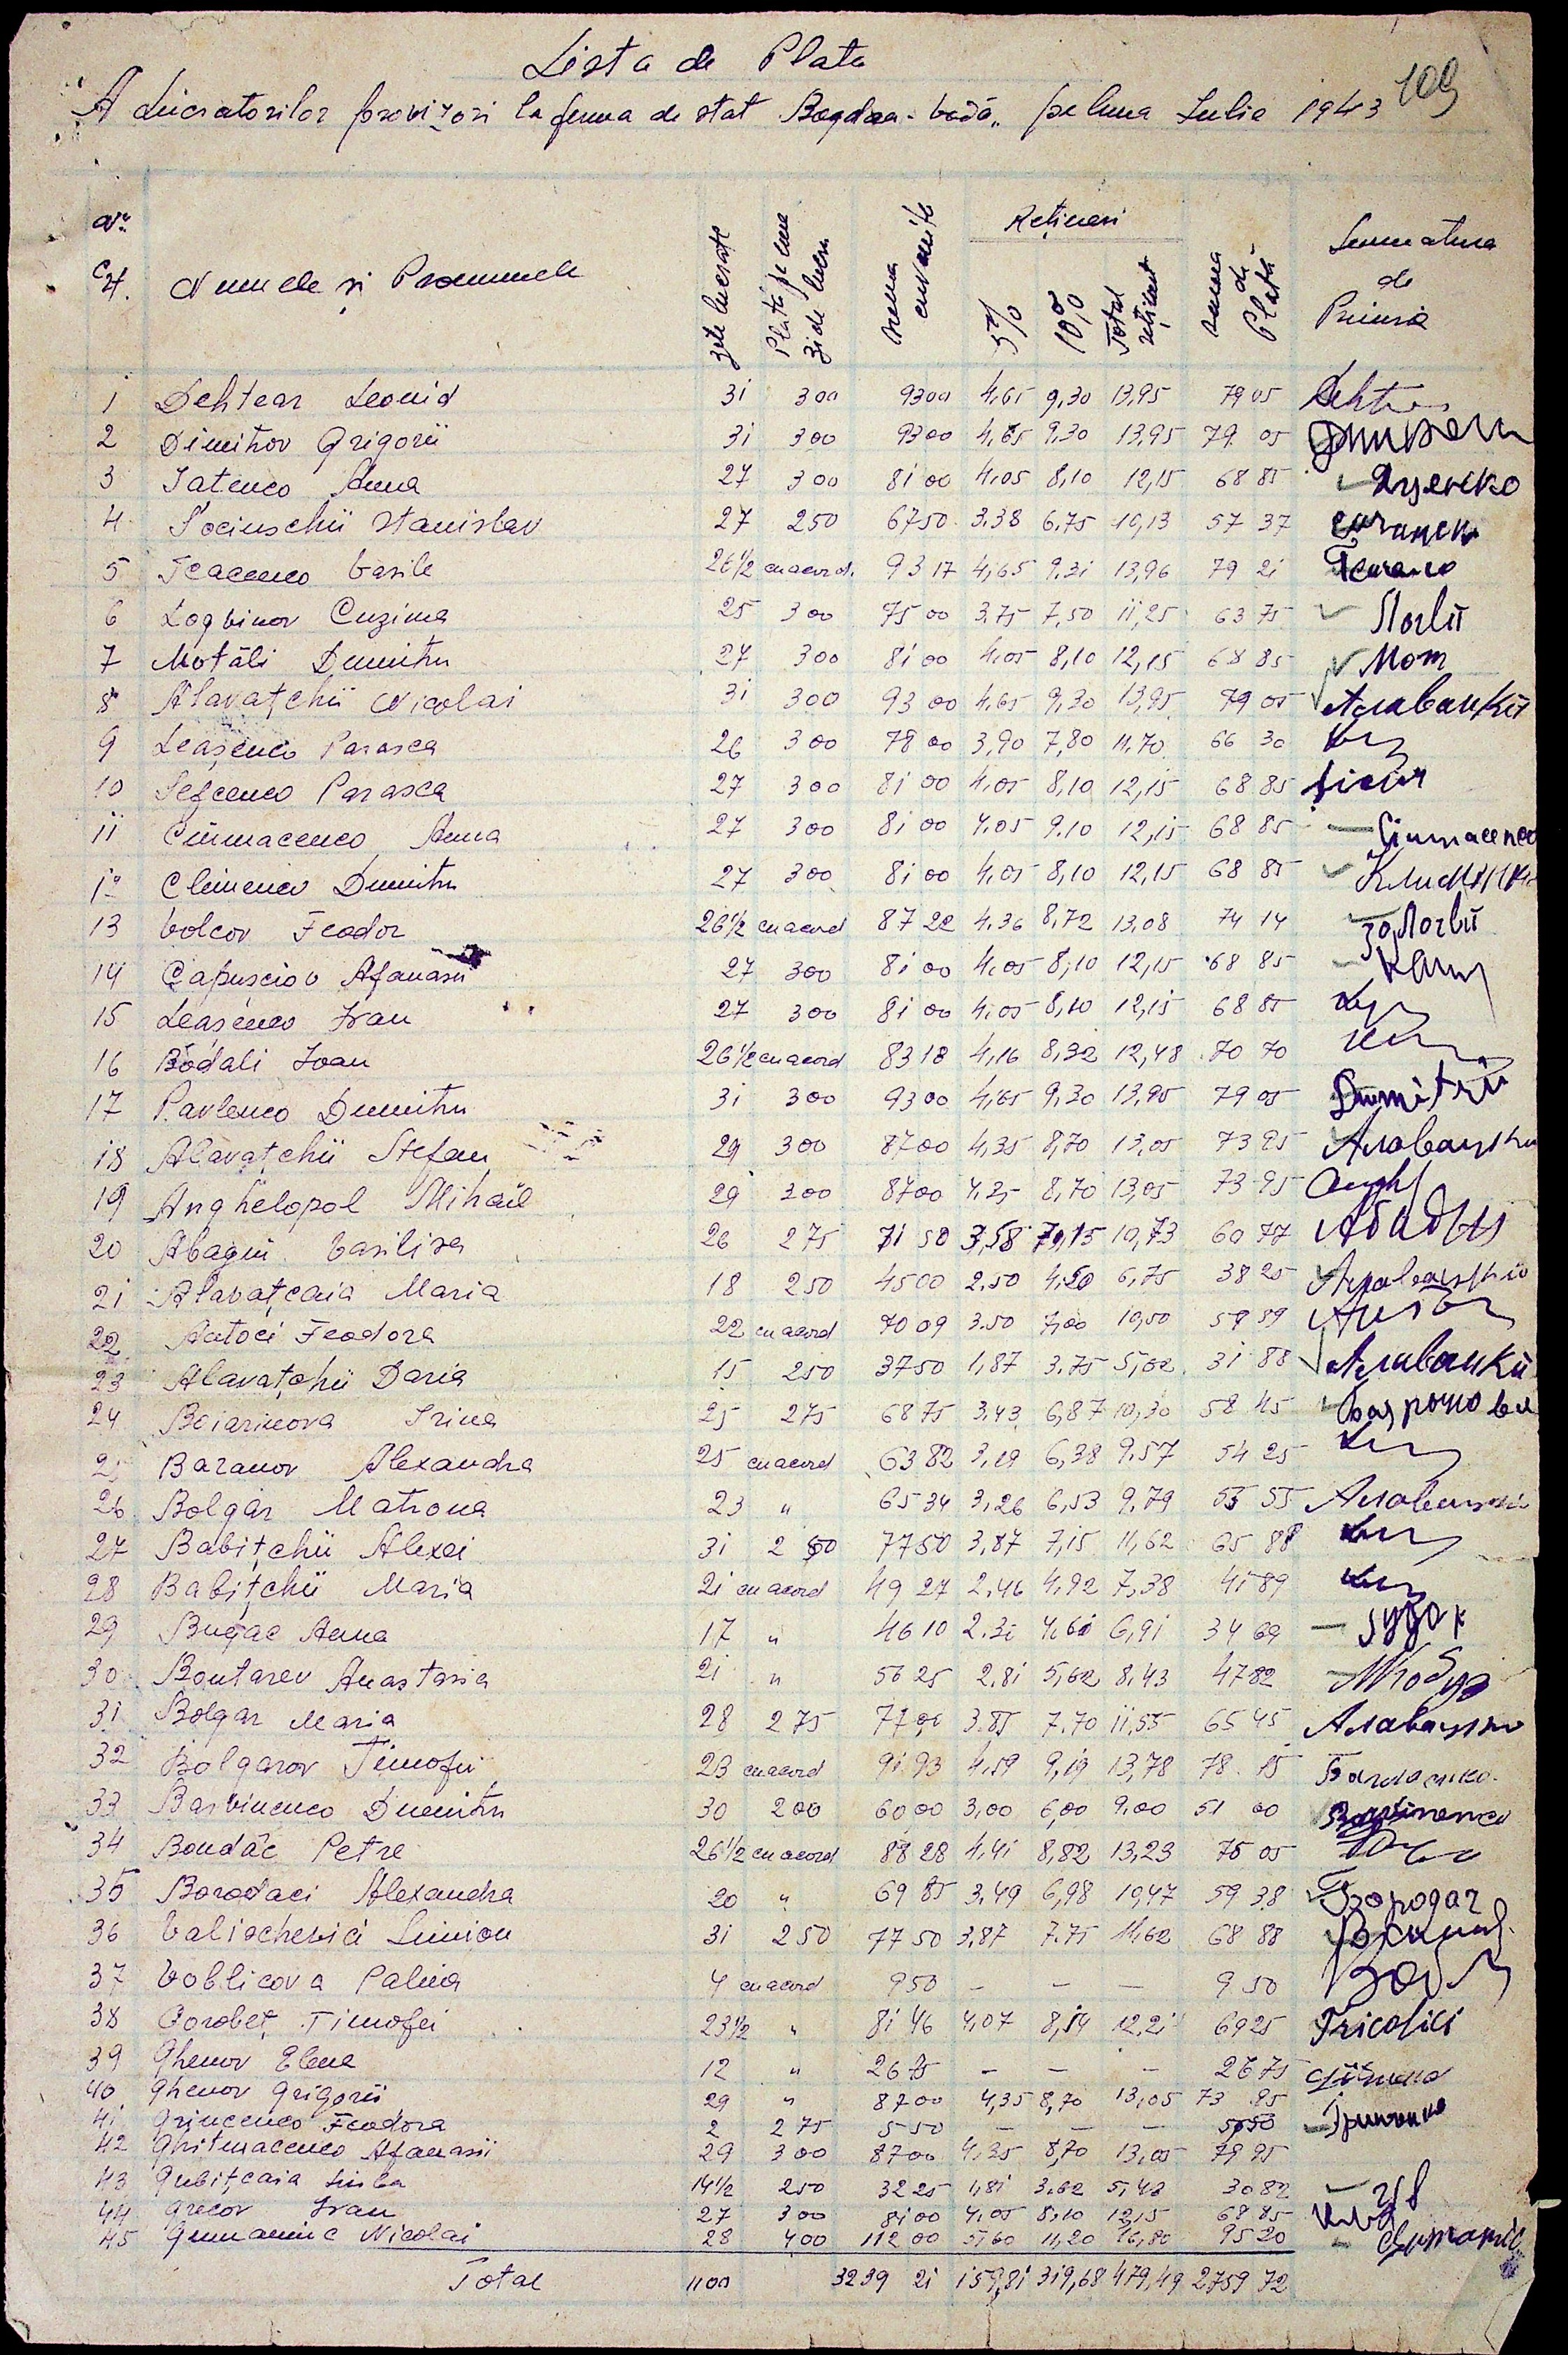 109
Lista de Plata
A Lucratorilor provizori la ferma de stat Bogdan-vodă„ pe luna Iulie 1943
Nr. crt. Numele și Pronumele zile lucrate Plata pe una zi de lucru suma cuvenită Rețineri 5% 10% Total rețineri suma de Plată Semnatura de Primire
1 Dehtear Leonid 31 300 9300 4,65 9,30 13,95 79 05 Dehtear
2 Dimitrov Grigorii 31 300 9300 4,65 9,30 13,95 79 05
3 Iatenco Anna 27 300 81 00 4,05 8,10 12,15 68 85 Яценко
4 Sociuschii Stanislav 27 250 67 50 3.38 6.75 10,13 57 37
5 Tcacenco Vasile 26½ cu acord. 93 17 4,65 9.31 13,96 79 21
6 Logvinov Cuzima 25 300 75 00 3.75 7,50 11,25 63 75
7 Motăli Dumitru 27 300 81 00 4,05 8,10 12,15 68 85 Мот
8 Alavațchii Nicolai 31 300 93 00 4,65 9,30 13,95 79 05 Алавацкий
9 Leașenco Parasca 26 300 78 00 3,90 7,80 11.70 66 30
10 Sefcenco Parasca 27 300 81 00 4,05 8,10 12,15 68 85
11 Ciumacenco Anna 27 300 81 00 4.05 9.10 12,15 68 85 Ciumacenco
12 Climenco Dumitru 27 300 81 00 4,05 8,10 12,15 68 85
13 Volcov Feodor 26½ cu acord 87 22 4.36 8,72 13,08 74 14
14 Capusciov Afanasii 27 300 81 00 4,05 8,10 12,15 68 85
15 Leașenco Ivan 27 300 81 00 4,05 8,10 12,15 68 85
16 Bodali Ioan 26½ cu acord 83 18 4,16 8,32 12,48 70 70
17 Pavlenco Dumitru 31 300 93 00 4,65 9,30 13,95 79 05 Dumitriu
18 Alavațchii Stefan 29 300 87 00 4,35 8,70 13,05 73 95
19 Anghelopol Mihail 29 300 87 00 4.35 8,70 13,05 73 95 Anghl
20 Abagiu Vasilisa 26 275 71 50 3,58 7,15 10,73 60 77
21 Alavațcaia Maria 18 250 45 00 2.50 4.50 6,75 38 25
22 Antoci Feodora 22 cu acord 70 09 3.50 7,00 10,50 59 59
23 Alavațchii Daria 15 250 37 50 1,87 3.75 5,62 31 88 Алавацкий
24 Boiarinova Irina 25 275 68 75 3,43 6,87 10,30 58 45
25 Baranov Alexandra 25 cu acord 63 82 3,19 6,38 9.57 54 25
26 Bolgar Matrona 23 " 65 34 3,26 6,53 9.79 55 55
27 Babițchii Alexei 31 250 77 50 3,87 7,15 11,62 65 88
28 Babițchii Maria 21 cu acord 49 27 2.46 4.92 7,38 41 89
29 Bugac Anna 17 " 46 10 2.31 4.61 6,91 34 69
30 Bontarev Anastasia 21 " 56 25 2,81 5,62 8,43 47 82
31 Bolgar Maria 28 275 77,00 3.85 7.70 11,55 65 45
32 Bolgarov Timofei 23 cu acord 91 93 4.59 9,19 13,78 78.15
33 Barvinenco Dumitru 30 200 60 00 3,00 6,00 9.00 51 00 Barvinenco
34 Bondăc Petre 26½ cu acord 88 28 4,41 8,82 13,23 75 05
35 Borodaci Alexandra 20 " 69 85 3,49 6,98 10,47 59 38 Бородач
36 Valischevici Simion 31 250 77 50 3,87 7.75 11,62 68 88
37 Voblicova Palina 4 cu acord 950 - - - 9 50
38 Vorobeț Timofei 23½ " 81 46 4,07 8,14 12,21 69 25 Tricolici
39 Ghenov Elena 12 " 26 75 - - - 26 75
40 Ghenov Grigorii 29 " 87 00 4,35 8,70 13,05 73 85
41 Grincenco Feodora 2 275 550 - - - 5 50
42 Ghitmacenco Afanasii 29 300 87 00 4,35 8,70 13,05 79 95
43 Gubițcaia 14½ 250 32 25 1,81 3.62 5,43 30 82
44 Grecov Ivan 27 300 81 00 4,05 8,10 12,15 68 85
45 Gumaniuc Nicolai 28 400 112 00 5,60 11,20 16,80 95 20
Total 1100 3239 21 159,81 319,68 479,49 2759 72